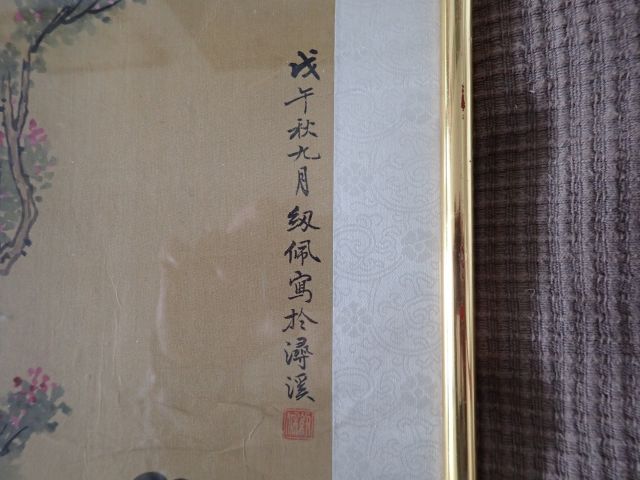 戊午秋九月紉佩寫於潯溪